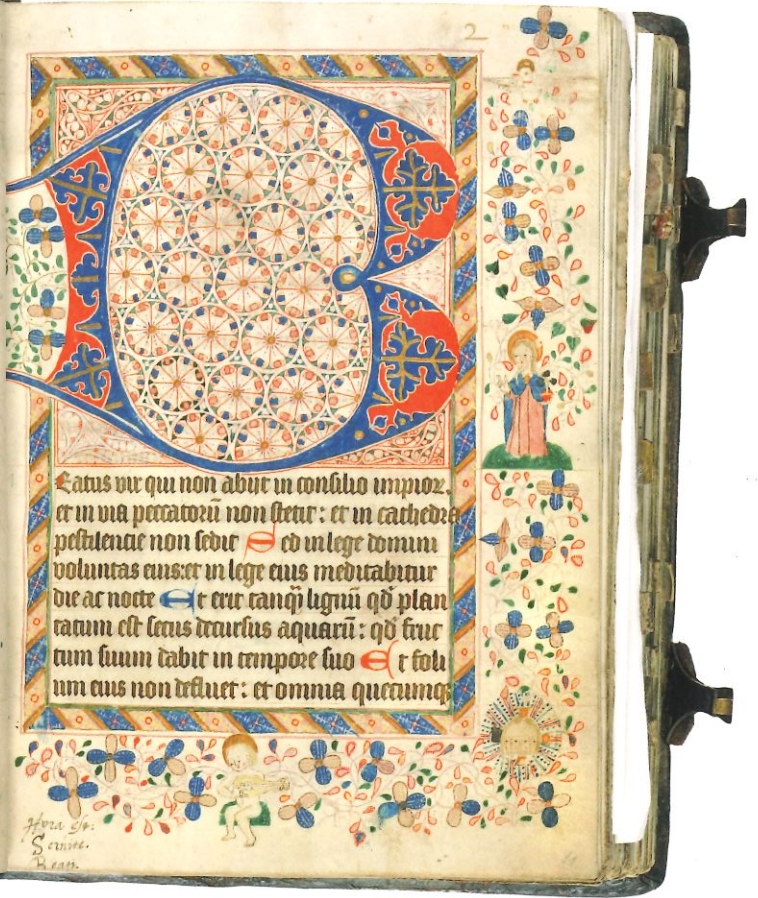 2
Beatus vir qui non abiit in consilio impior.
et in via peccatorū non stetit: et in cathedra
pestilencie non sedit Sed in lege domini
voluntas eius: et in lege eius meditabitur
die ac nocte Et erit tanq̄ lignū qd̄ plan
tatum est secus decursus aquarū: qd̄ fruc
tum suum dabit in tempore suo Et foli
um eius non defluet: et omnia quecumq
Hora